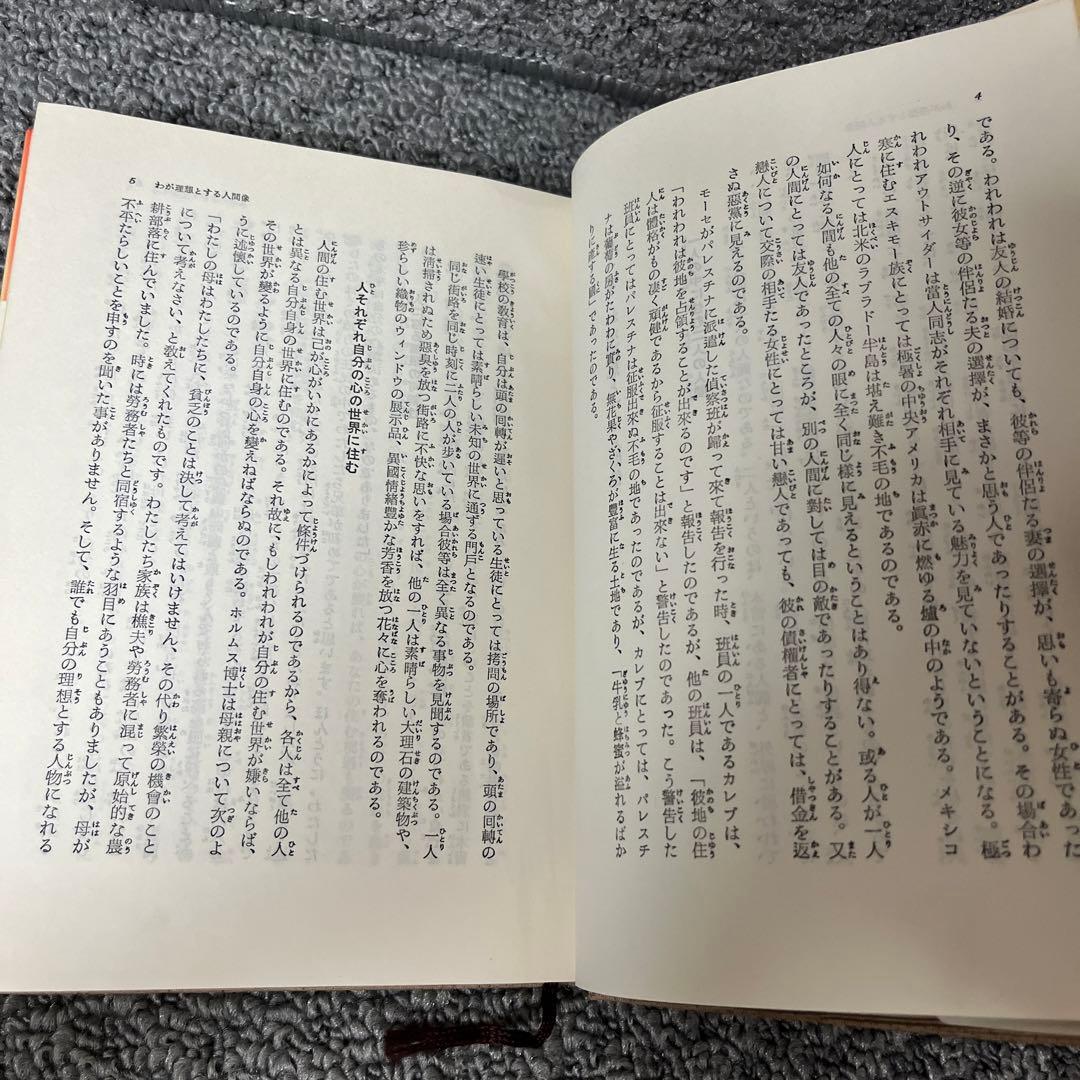 4
である。われわれは友人の結婚についても、彼等の伴侶たる妻の選擇が、思いも寄らぬ女性であった
り、その逆に彼女等の伴侶たる夫の選擇が、まさかと思う人であったりすることがある。その場合わ
れわれアウトサイダーは當人同志がそれぞれ相手に見ている魅力を見ていないということになる。極
寒に住むエスキモー族にとっては極暑の中央アメリカは眞赤に燃ゆる爐の中のようである。メキシコ
人にとっては北米のラブラドー半島は堪え難き不毛の地であるのである。
如何なる人間も他の全ての人々の眼に全く同じ様に見えるということはあり得ない。或る人が一人
の人間にとっては友人であったところが、別の人間に對しては目の敵であったりすることがある。又
戀人について交際の相手たる女性にとっては甘い戀人であっても、彼の債權者にとっては、借金を返
さぬ惡黨に見えるのである。
モーセがパレスチナに派遣した偵察班が歸って來て報告を行った時、班員の一人であるカレブは、
「われわれは彼地を占領することが出來るのです」と報告したのであるが、他の班員は、「彼地の住
人は體格がもの凄く頑健であるから征服することは出來ない」と警告したのであった。こう警告した
班員にとってはパレスチナは征服出來ぬ不毛の地であったのであるが、カレブにとっては、パレスチ
ナは葡萄の房がたわわに實り、無花果やざくろが豐富に生る土地であり、「牛乳と蜂蜜が溢れるばか
りに流する國」であったのである。
學校の敎育は、自分は頭の回轉が遲いと思っている生徒にとっては拷問の場所であり、頭の回轉の
速い生徒にとっては素晴らしい未知の世界に通ずる門戸となるのである。
同じ街路を同じ時刻に二人の人が歩いている場合彼等は全く異なる事物を見聞するのである。一人
は淸掃されぬため惡臭を放つ街路に不快な思いをすれば、他の一人は素晴らしい大理石の建築物や、
珍らしい織物のウィンドウの展示品、異國情緖豐かな芳香を放つ花々に心を奪われるのである。
人それぞれ自分の心の世界に住む
人間の住む世界は己が心がいかにあるかによって條件づけられるのであるから、各人は全て他の人
とは異なる自分自身の世界に住むのである。それ故に、もしわれわれが自分の住む世界が嫌いならば、
その世界が變るように自分自身の心を變えねばならぬのである。ホルムス博士は母親について次のよ
うに述懷しているのである。
「わたしの母はわたしたちに、貧乏のことは決して考えてはいけません、その代り繁榮の機會のこと
について考えなさい、と敎えてくれたものです。わたしたち家族は樵夫や勞務者に混って原始的な農
耕部落に住んでいました。時には勞務者たちと同宿するような羽目にあうこともありましたが、母が
不平たらしいことを申すのを聞いた事がありません。そして、誰でも自分の理想とする人物になれる
5 わが理想とする人間像